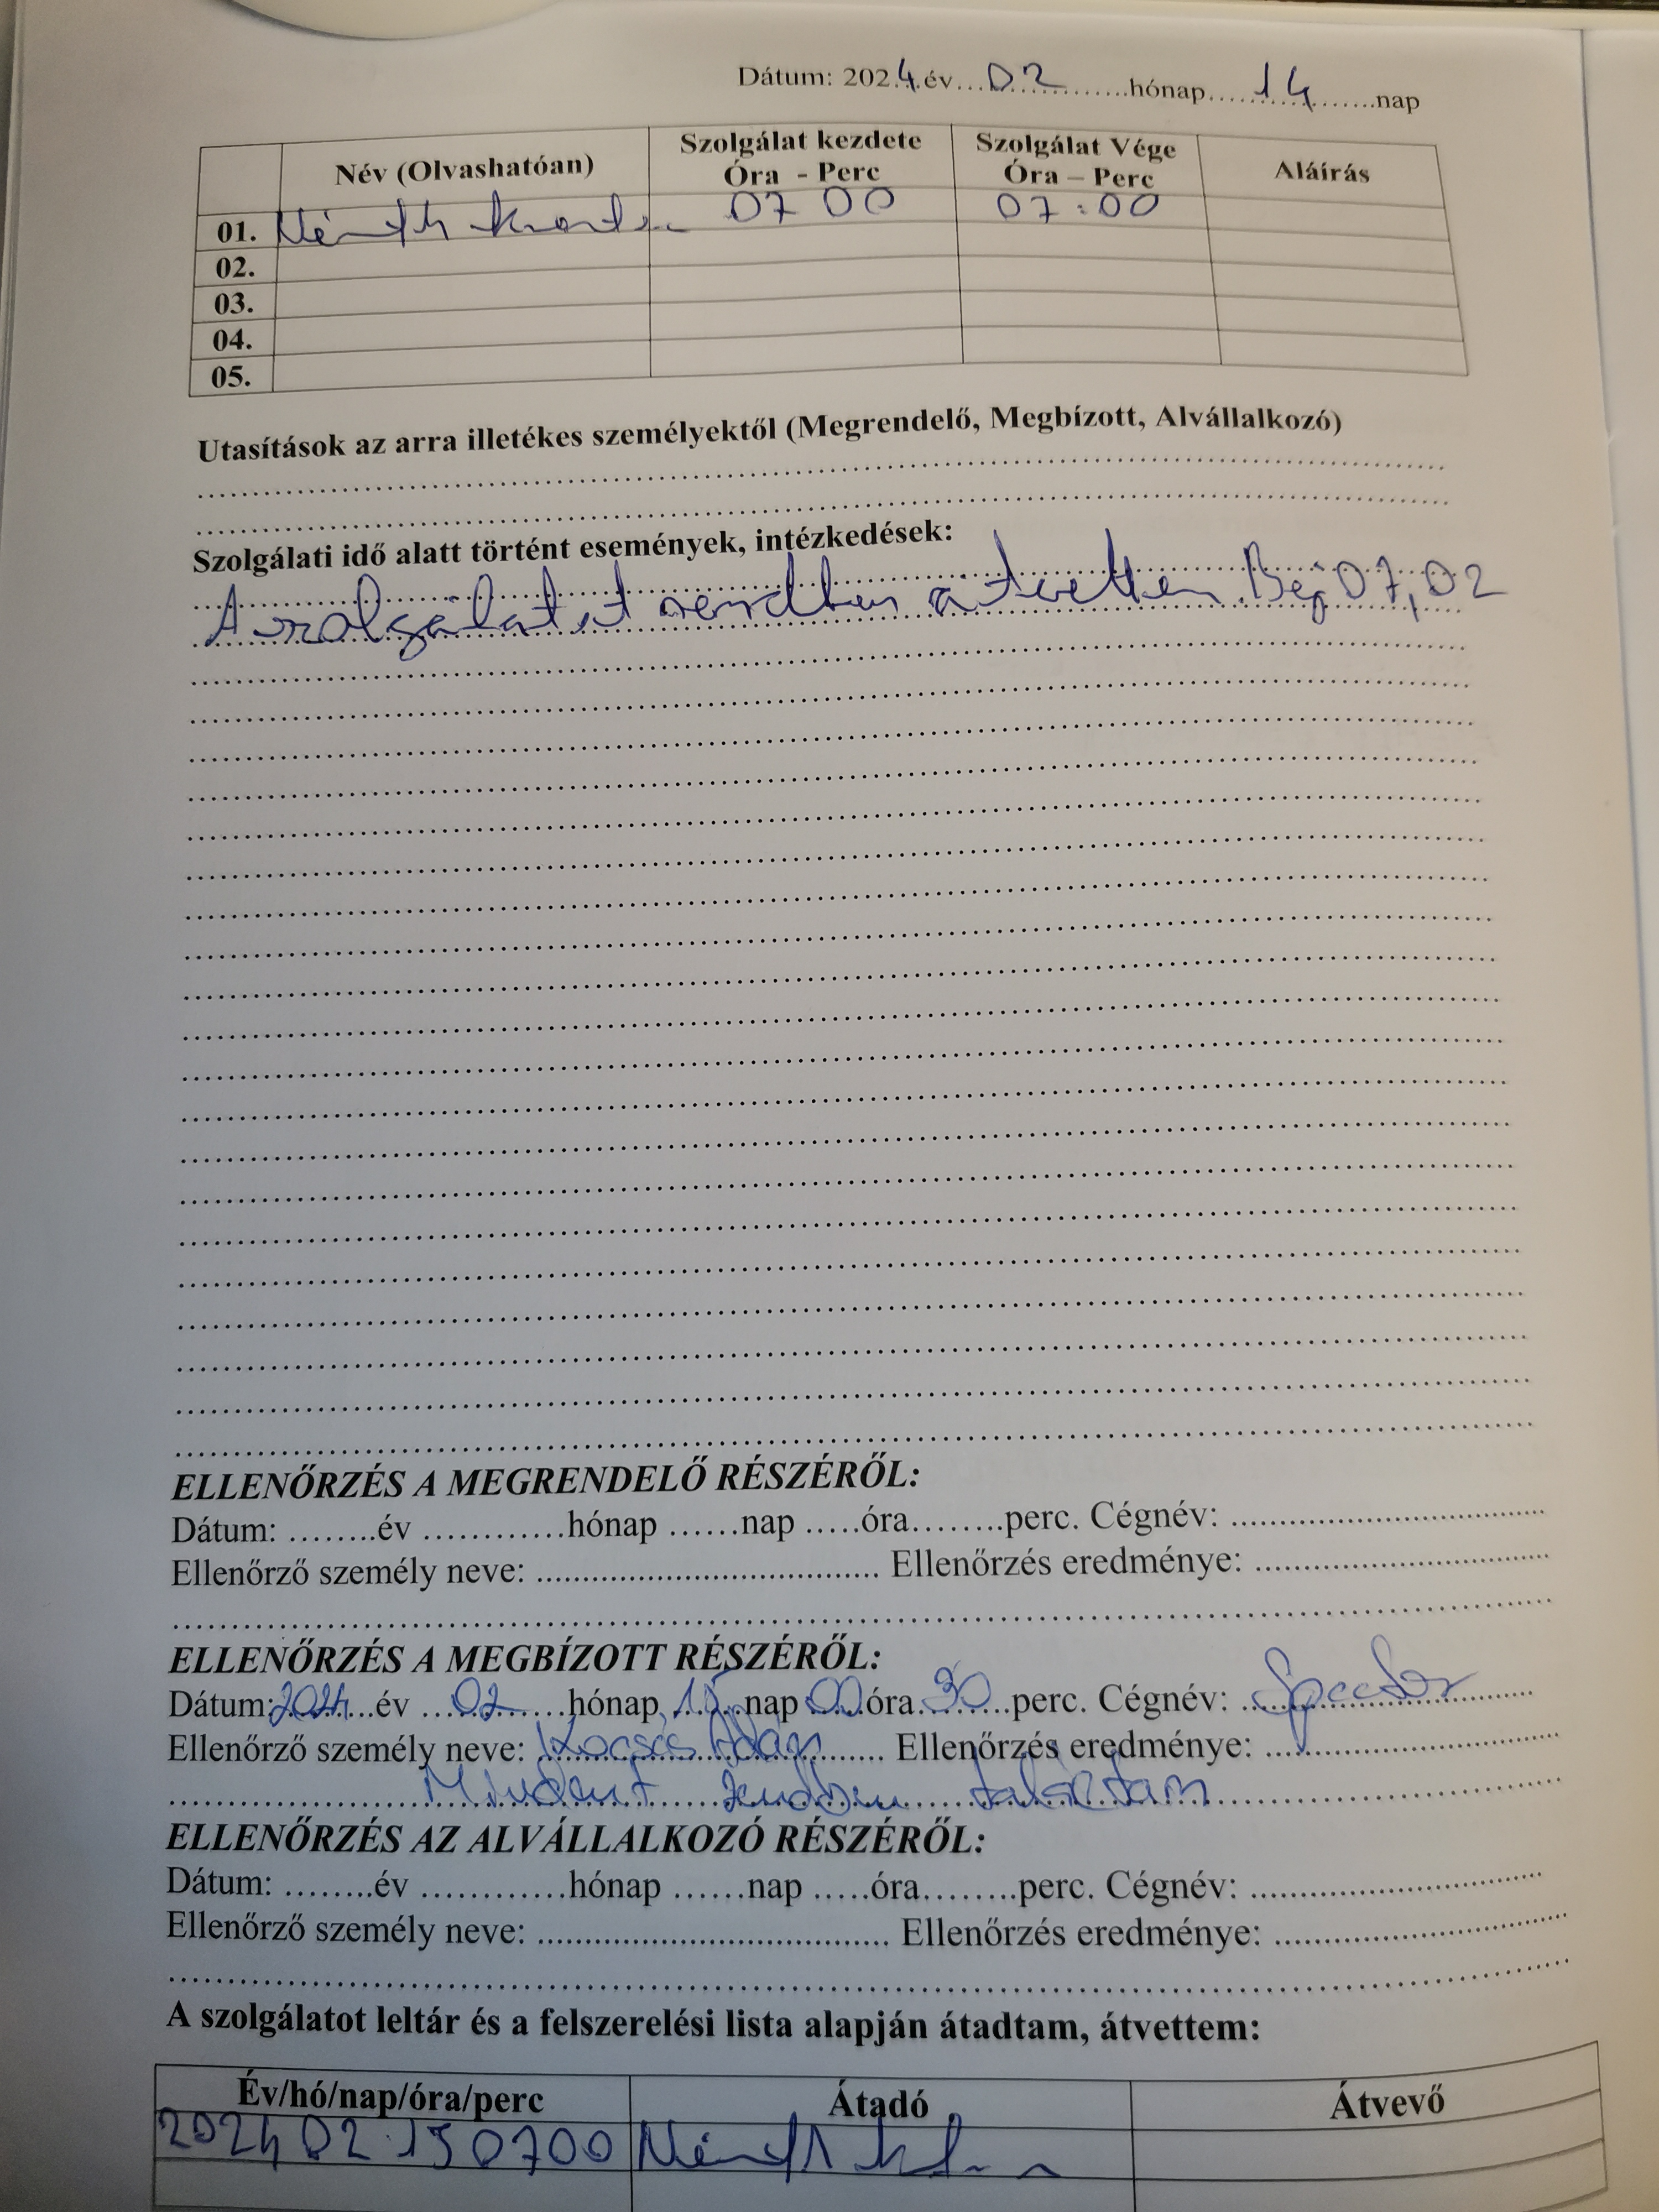 Dátum: 2024.év....02..............hónap.....14........nap
Név (Olvashatóan) Szolgálat kezdete Óra - Perc Szolgálat Vége Óra – Perc Aláírás
01. Németh 07 00 07:00
02.
03.
04.
05.
Utasítások az arra illetékes személyektől (Megrendelő, Megbízott, Alvállalkozó)
Szolgálati idő alatt történt események, intézkedések:
A szolgálatot rendben átvettem Bej 07,02
ELLENŐRZÉS A MEGRENDELŐ RÉSZÉRŐL:
Dátum: ........év ............hónap ......nap .....óra........perc. Cégnév: ..................................
Ellenőrző személy neve: ..................................... Ellenőrzés eredménye: ................................
ELLENŐRZÉS A MEGBÍZOTT RÉSZÉRŐL:
Dátum: 2024 év 02 hónap 15 nap 00 óra 30 perc. Cégnév:
Ellenőrző személy neve: Kocsis Ádám Ellenőrzés eredménye:
Mindent rendben találtam
ELLENŐRZÉS AZ ALVÁLLALKOZÓ RÉSZÉRŐL:
Dátum: ........év ............hónap ......nap .....óra........perc. Cégnév: ..................................
Ellenőrző személy neve: ..................................... Ellenőrzés eredménye: ................................
A szolgálatot leltár és a felszerelési lista alapján átadtam, átvettem:
Év/hó/nap/óra/perc Átadó Átvevő
2024 02.15 0700 Németh